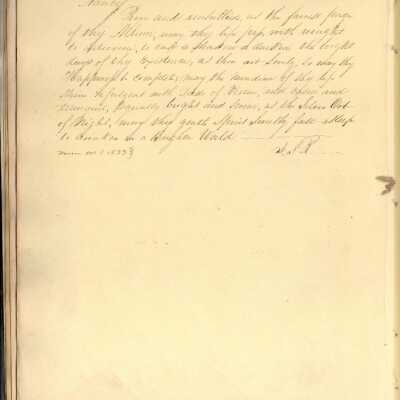 Nancy
Pure and unsullied, as the fairest page
of thy Album, may thy life pass, with nought
to achieving, to cast a shadow & darken the bright
days of thy existence, as thou art lovely, so may thy
Happiness be complete, may the meridian of thy life
Shine refulgent with Gods of Virtue, and
tranquil, Equally bright and Serene, as the Silver Orb
of Night, may thy gentle Spirit Sweetly fall asleep
to awaken in a Brighter World
1833